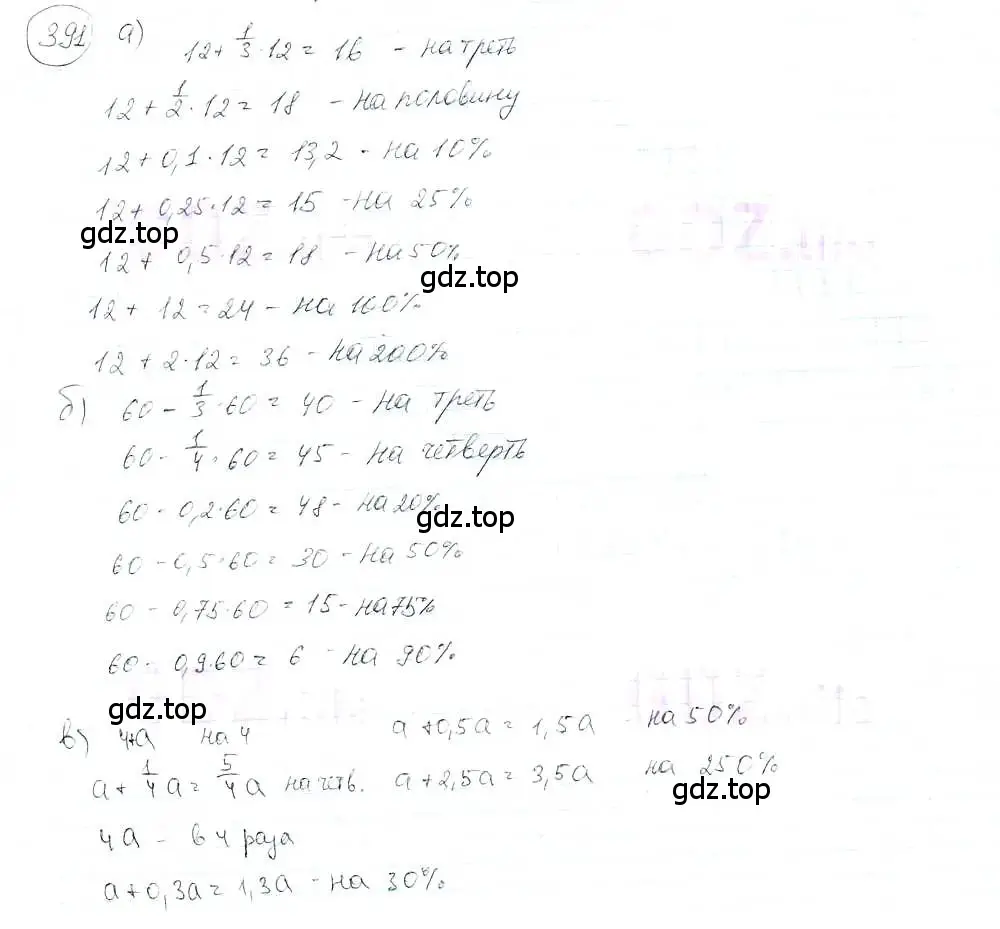 391 а) 12 + 1/3 · 12 = 16 - на треть
12 + 1/2 · 12 = 18 - на половину
12 + 0,1 · 12 = 13,2 - на 10%
12 + 0,25 · 12 = 15 - на 25%
gdz.top
12 + 0,5 · 12 = 18 - на 50%
gdz.top
12 + 12 = 24 - на 100%
12 + 2 · 12 = 36 - на 200%
б) 60 - 1/3 · 60 = 40 - на треть
60 - 1/4 · 60 = 45 - на четверть
60 - 0,2 · 60 = 48 - на 20%
gdz.top
60 - 0,5 · 60 = 30 - на 50%
60 - 0,75 · 60 = 15 - на 75%
60 - 0,9 · 60 = 6 - на 90%
gdz.top
в) 4+a на 4 a + 0,5a = 1,5a на 50%
a + 1/4 a = 5/4 a на чтв. a + 2,5a = 3,5a на 250%
gdz.top
4a - в 4 раза
a + 0,3a = 1,3a - на 30%